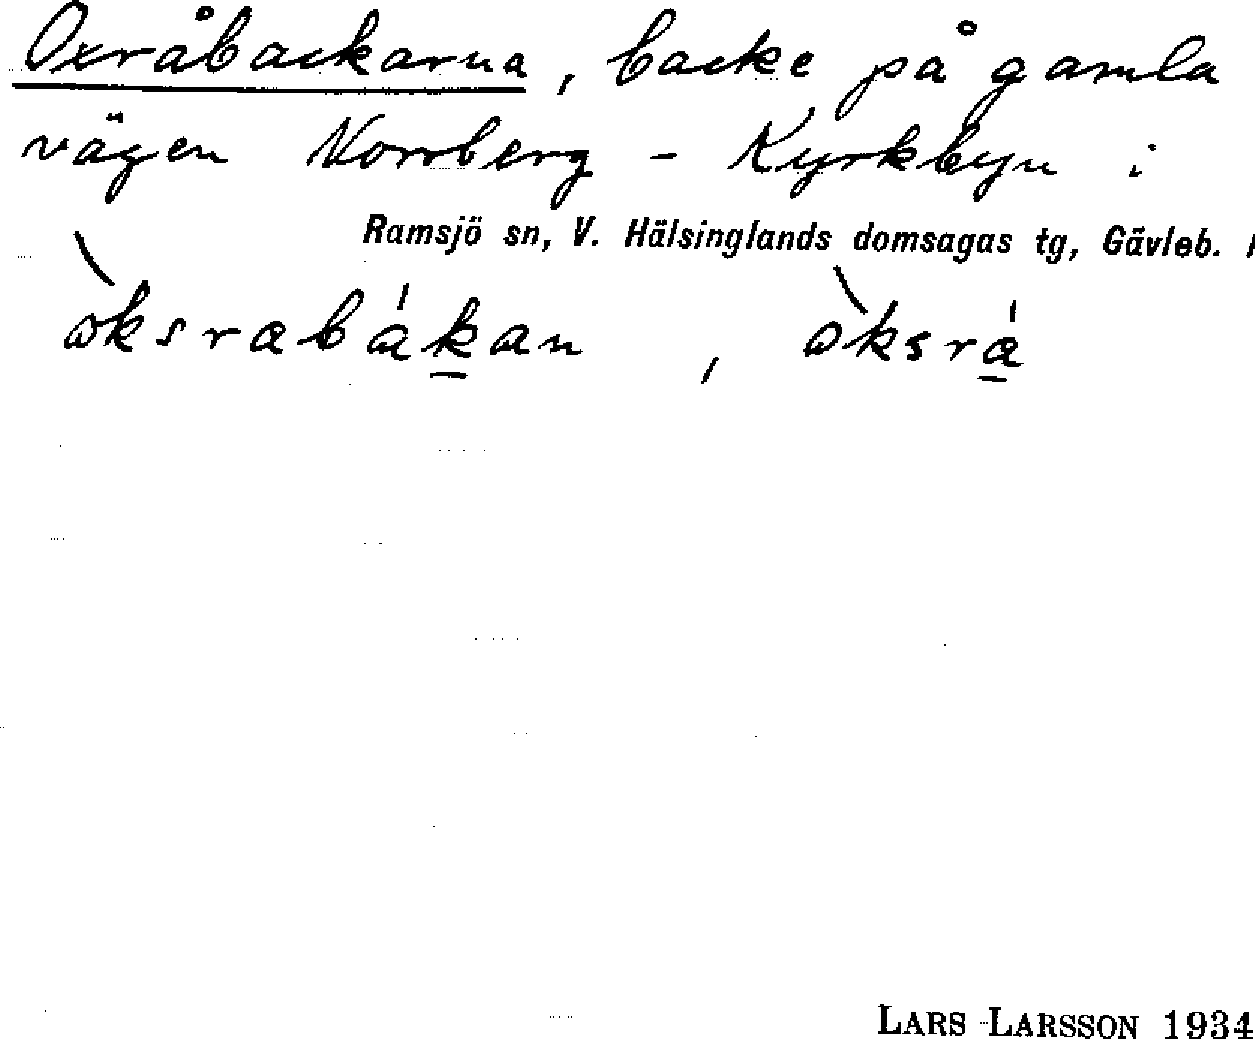 Oxråbackarna, backe på gamla
vägen Norrberg - Kyrkbyn i
Ramsjö sn, V. Hälsinglands domsagas tg, Gävleb. l
òksrabákan, òksrá
LARS LARSSON 1934